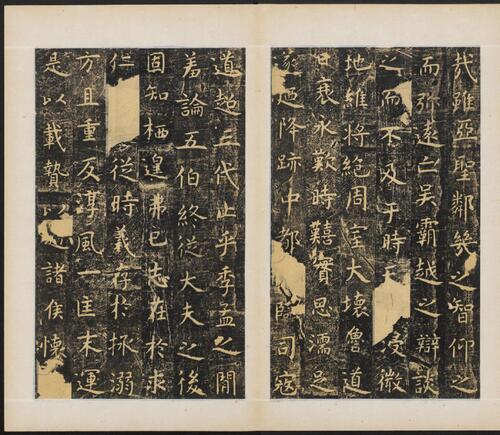 哉雖亞聖鄰幾之智仰之
而弥遠亡吴霸越之辯談
之而不及于時天浸微
地維將絕周室大壞魯道
日衰永歎時囏實思濡足
遂迺降跡中都臨司寇
道超三代止乎季孟之間
羞論五伯終從大夫之後
固知栖遑弗已志在於求
仁從時義存於拯溺
方且重反淳風一匡末運
是以載贄諸侯懷